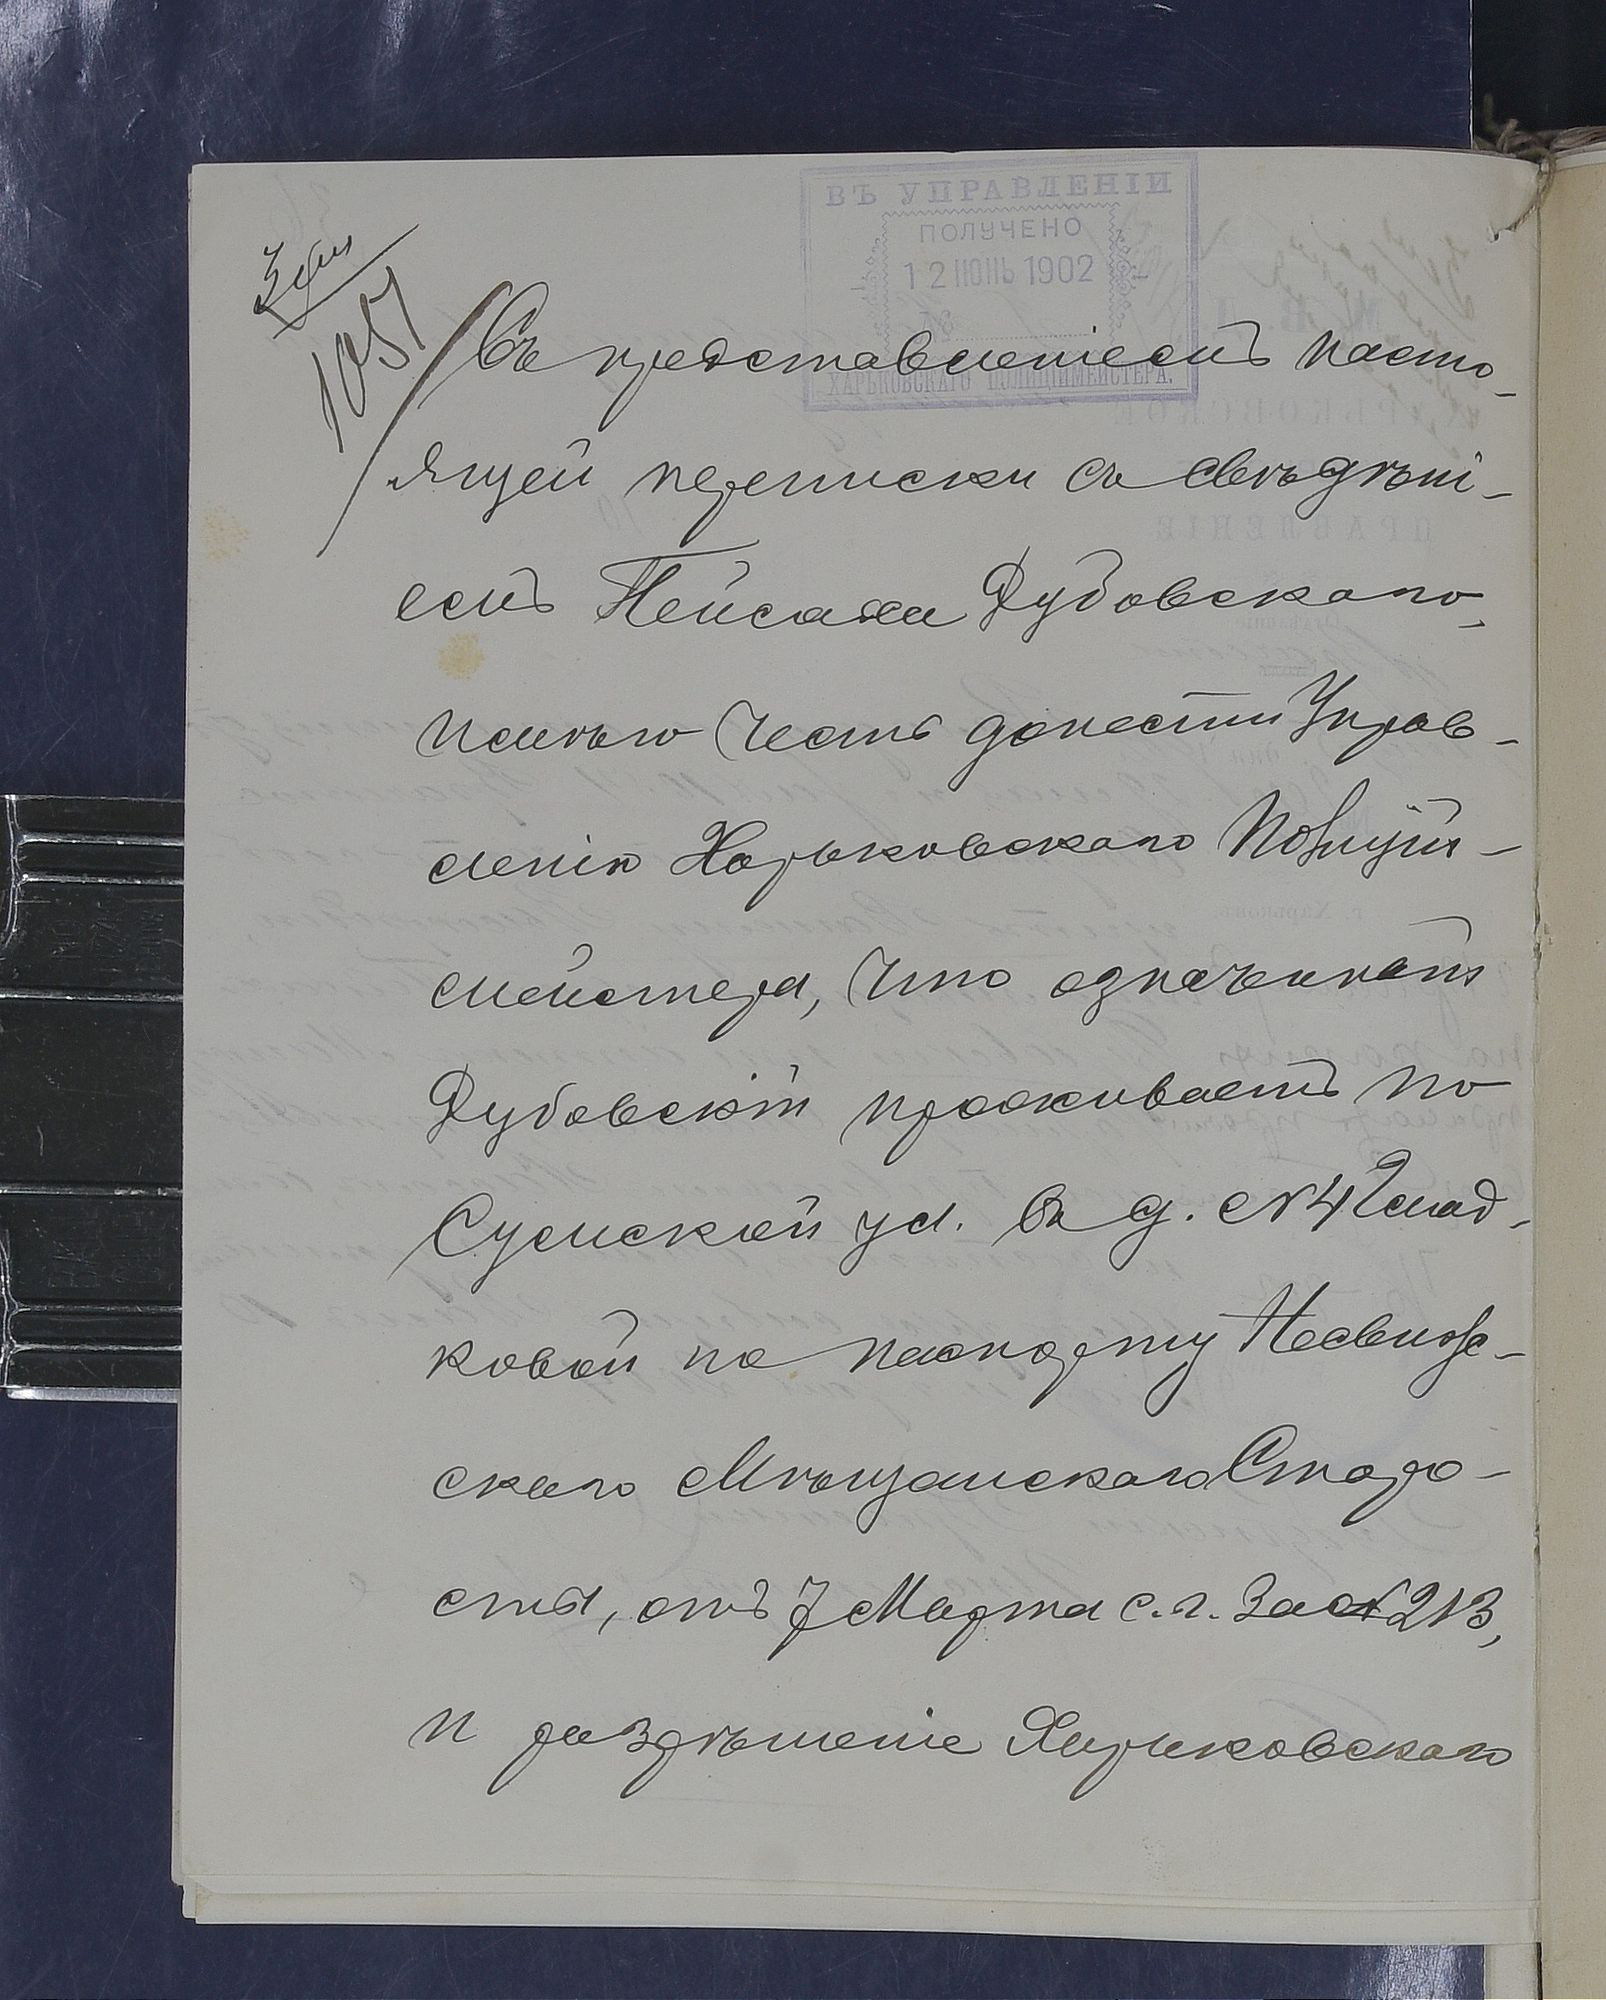 ВЪ УПРАВЛЕНІИ
ПОЛУЧЕНО
12 ІЮНЬ 1902
№
ХАРЬКОВСКАГО ПОЛИЦІЙМЕЙСТЕРА.
1051
Съ представленіемъ насто-
ящей переписки съ свѣдѣні-
емъ Пейсаха Дубовскаго,
имѣю честь донести Управ-
ленію Харьковскаго Полиций-
мейстера, что означенный
Дубовскій проживаетъ по
Сумской ул. въ д. №4 Глад-
ковой по паспорту Несвиж-
скаго Мѣщанскаго Старо-
сты, отъ 7 Марта с.г. за №213,
и разрѣшеніе Харьковскаго